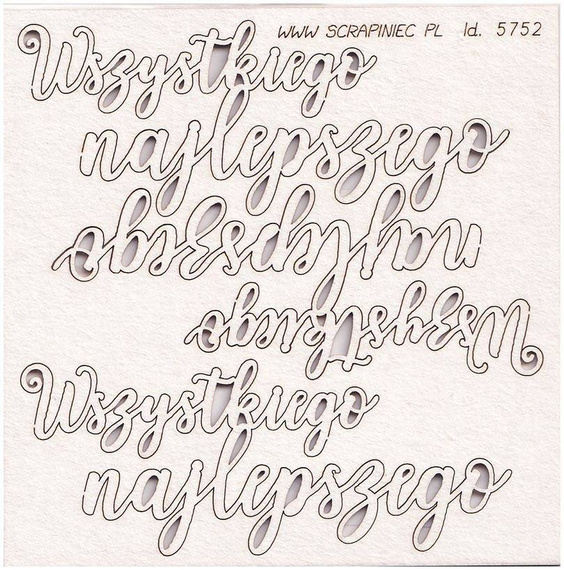 WWW SCRAPINIEC PL Id. 5752
Wszystkiego
najlepszego
najlepszego
Wszystkiego
Wszystkiego
najlepszego